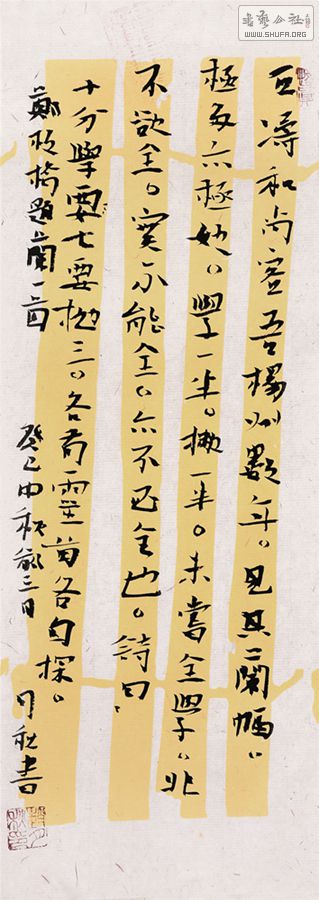 書藝公社
WWW.SHUFA.ORG
石濤和尚客吾楊州數年。見其蘭幅。
極多亦極妙。學一半。撇一半。未嘗全學。非
不欲全。實不能全。亦不必全也。詩曰:
十分學要七要拋三。各有靈苗各自探。
鄭板橋題蘭一首 癸巳中秋前三日 月秋書